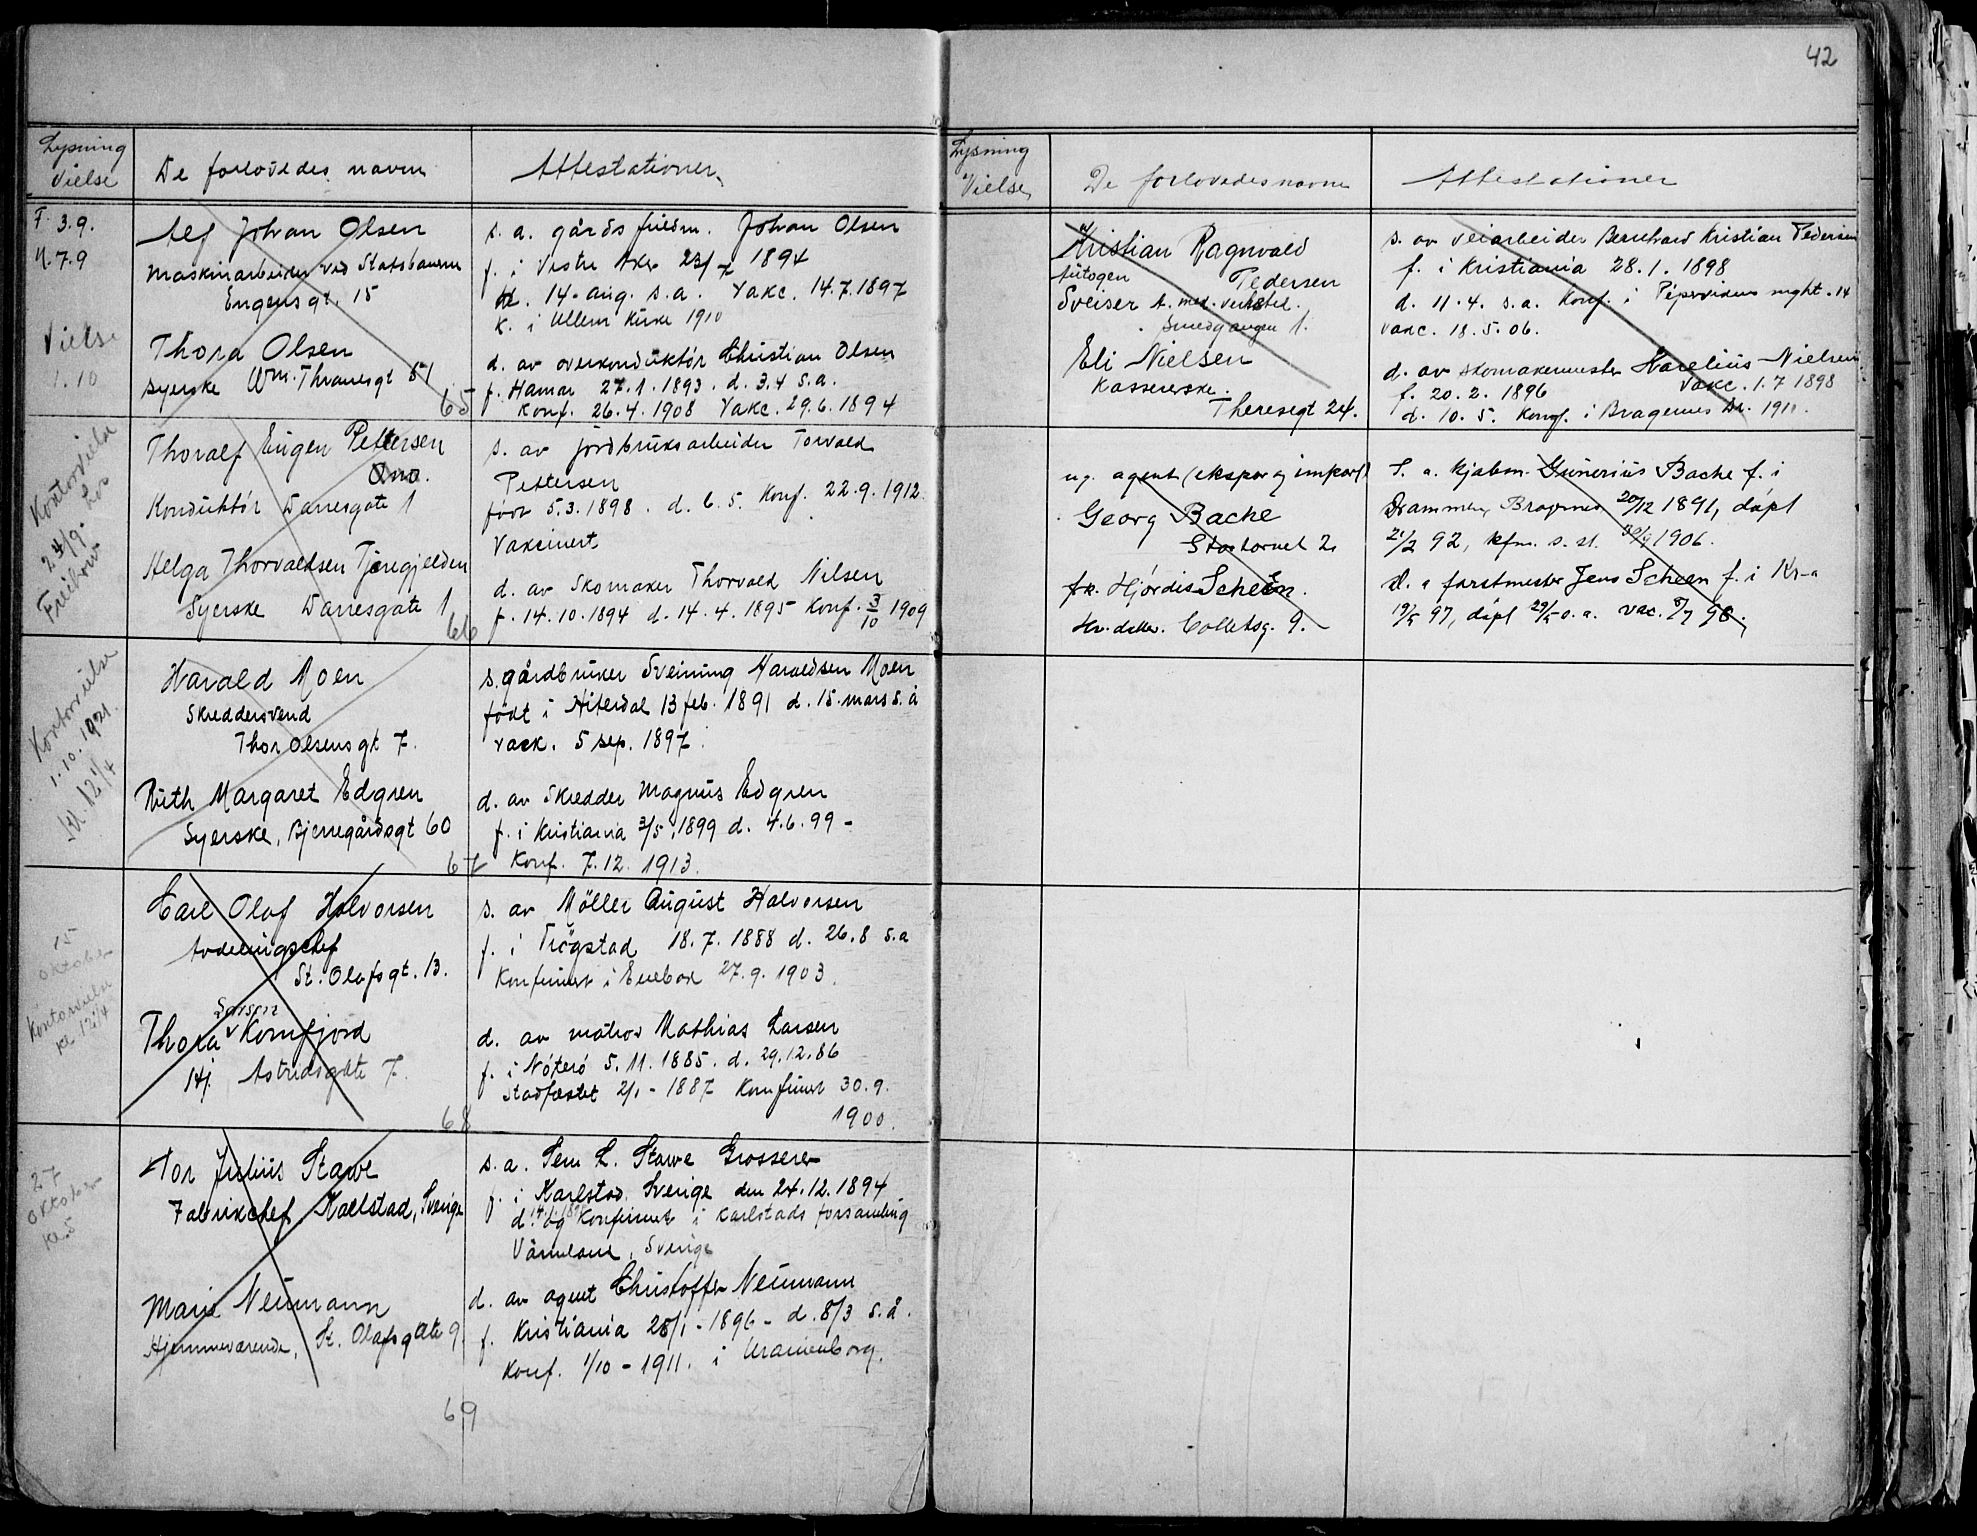 42
Lysning
Vielse
De forlovedes navn
Attestationer
F. 3.9.
U. 7.9
Vielse
1.10
Alf Johan Olsen
Maskinarbeider ved Statsbanerne
Engensgt. 15
Thora Olsen
syerske Wm. Thranesgt
65
s. a. gårds Johan Olsen
f. i Vestre Aker 23/7 1894
d. 14. aug. s.a. Vakc. 14.7.1897
k. i Ullern Kirke 1910
d. av overkonduktør Christian Olsen
f. Hamar 27.1.1893. d. 3.4 s.a.
Konf. 26.4.1908 Vakc. 29.6.1894
Kontorvielse
24/9.
Thoralf Eugen Pettersen
Konduktør Darresgate 1
Helga Thorvaldsen
Syerske Darresgate 1
66
s. av jordbruksarbeider Torvald
Pettersen
født 5.3.1898. d. 6.5. Konf. 22.9.1912.
Vaksinert
d. av Skomaker Thorvald Nilsen
f. 14.10.1894 d. 14.4.1895 Konf. 3/10 1909
Kontorvielse
1.10.1921.
kl. 12 1/4
Harald Moen
Skreddersvend
Thor Olsensgt 7.
Ruth Margaret Edgren
Syerske, Bjerregårdsgt 60
67
s. gårdbruker Sveinung Haraldsen Moen
født i Hiterdal 13 feb. 1891 d. 15. mars s. å
vack. 5 sep. 1897.
d. av Skredder Magnus Edgren
f. i Kristiania 3/5 1899 d. 4.6.99 -
Konf. 7.12. 1913.
15
oktober
Kontorvielse
kl. 12 1/4
Carl Olaf Halvorsen
Avdelingschef
St. Olafsgt. 13.
Larsen
Thora v Kornfjord
Hj. Astridsgate 7.
68
s. av Møller August Halvorsen
f. i Trøgstad 18.7.1888 d. 26.8 s.a
Konfirmert i Enebak 27.9.1903.
d. av matros Mathias Larsen
f. i Nøterø 5.11.1885. d. 29.12.86
Stadfæstet 2/1 - 1887 Konfirmert 30.9.
1900.
27
oktober
kl. 5
Tor Julius Stawe
Fabrikchef Karlstad, Sverige
Marie Neumann
Hjemmeværende, St. Olafsgate 9.
69
s. a. L. Stawe Grosserer
f. i Karlstad, Sverige den 24.12.1894
d. og Konfirmert i Karlstads forsamling
Värmland, Sverige
d. av agent Christoffer Neumann
f. Kristiania 28/1 - 1896 - d. 8/3 s.å.
Konf. 1/10 - 1911. i Uranienborg.
Lysning
Vielse
De forlovedes navne
Attestationer
Kristian Ragnvald
Pedersen
Sveiser
Smedgangen 1.
Eli Nielsen
Kassererske.
Theresegt 24.
s. av veiarbeider Bernhard Kristian Pedersen
f. i Kristiania 28.1.1898
d. 11.4. s.a. Konf. i Pipervikens mght. 14
vakc. 18.5.06.
d. av skomakermester Harelius Nielsen
f. 20.2.1896 vakc. 1.7 1898
d. 10.5. Konf. i Bragernes kr. 1911.
ug. agent (ekspor og import)
Georg Bache
Stortorvet 2
frk. Hjørdis Scheen.
Hv. datter. Colletsg. 9.
S. a. kjøbm. Gunerius Bache f. i
Drammen, Bragernes 20/12 1891, døpt
21/2 92, kfm. s. st. 30/9 1906.
D. a forstmester Jens Scheen f. i Kr-a
19/5 97, døpt 29/5 s.a. vac. 8/7 98.